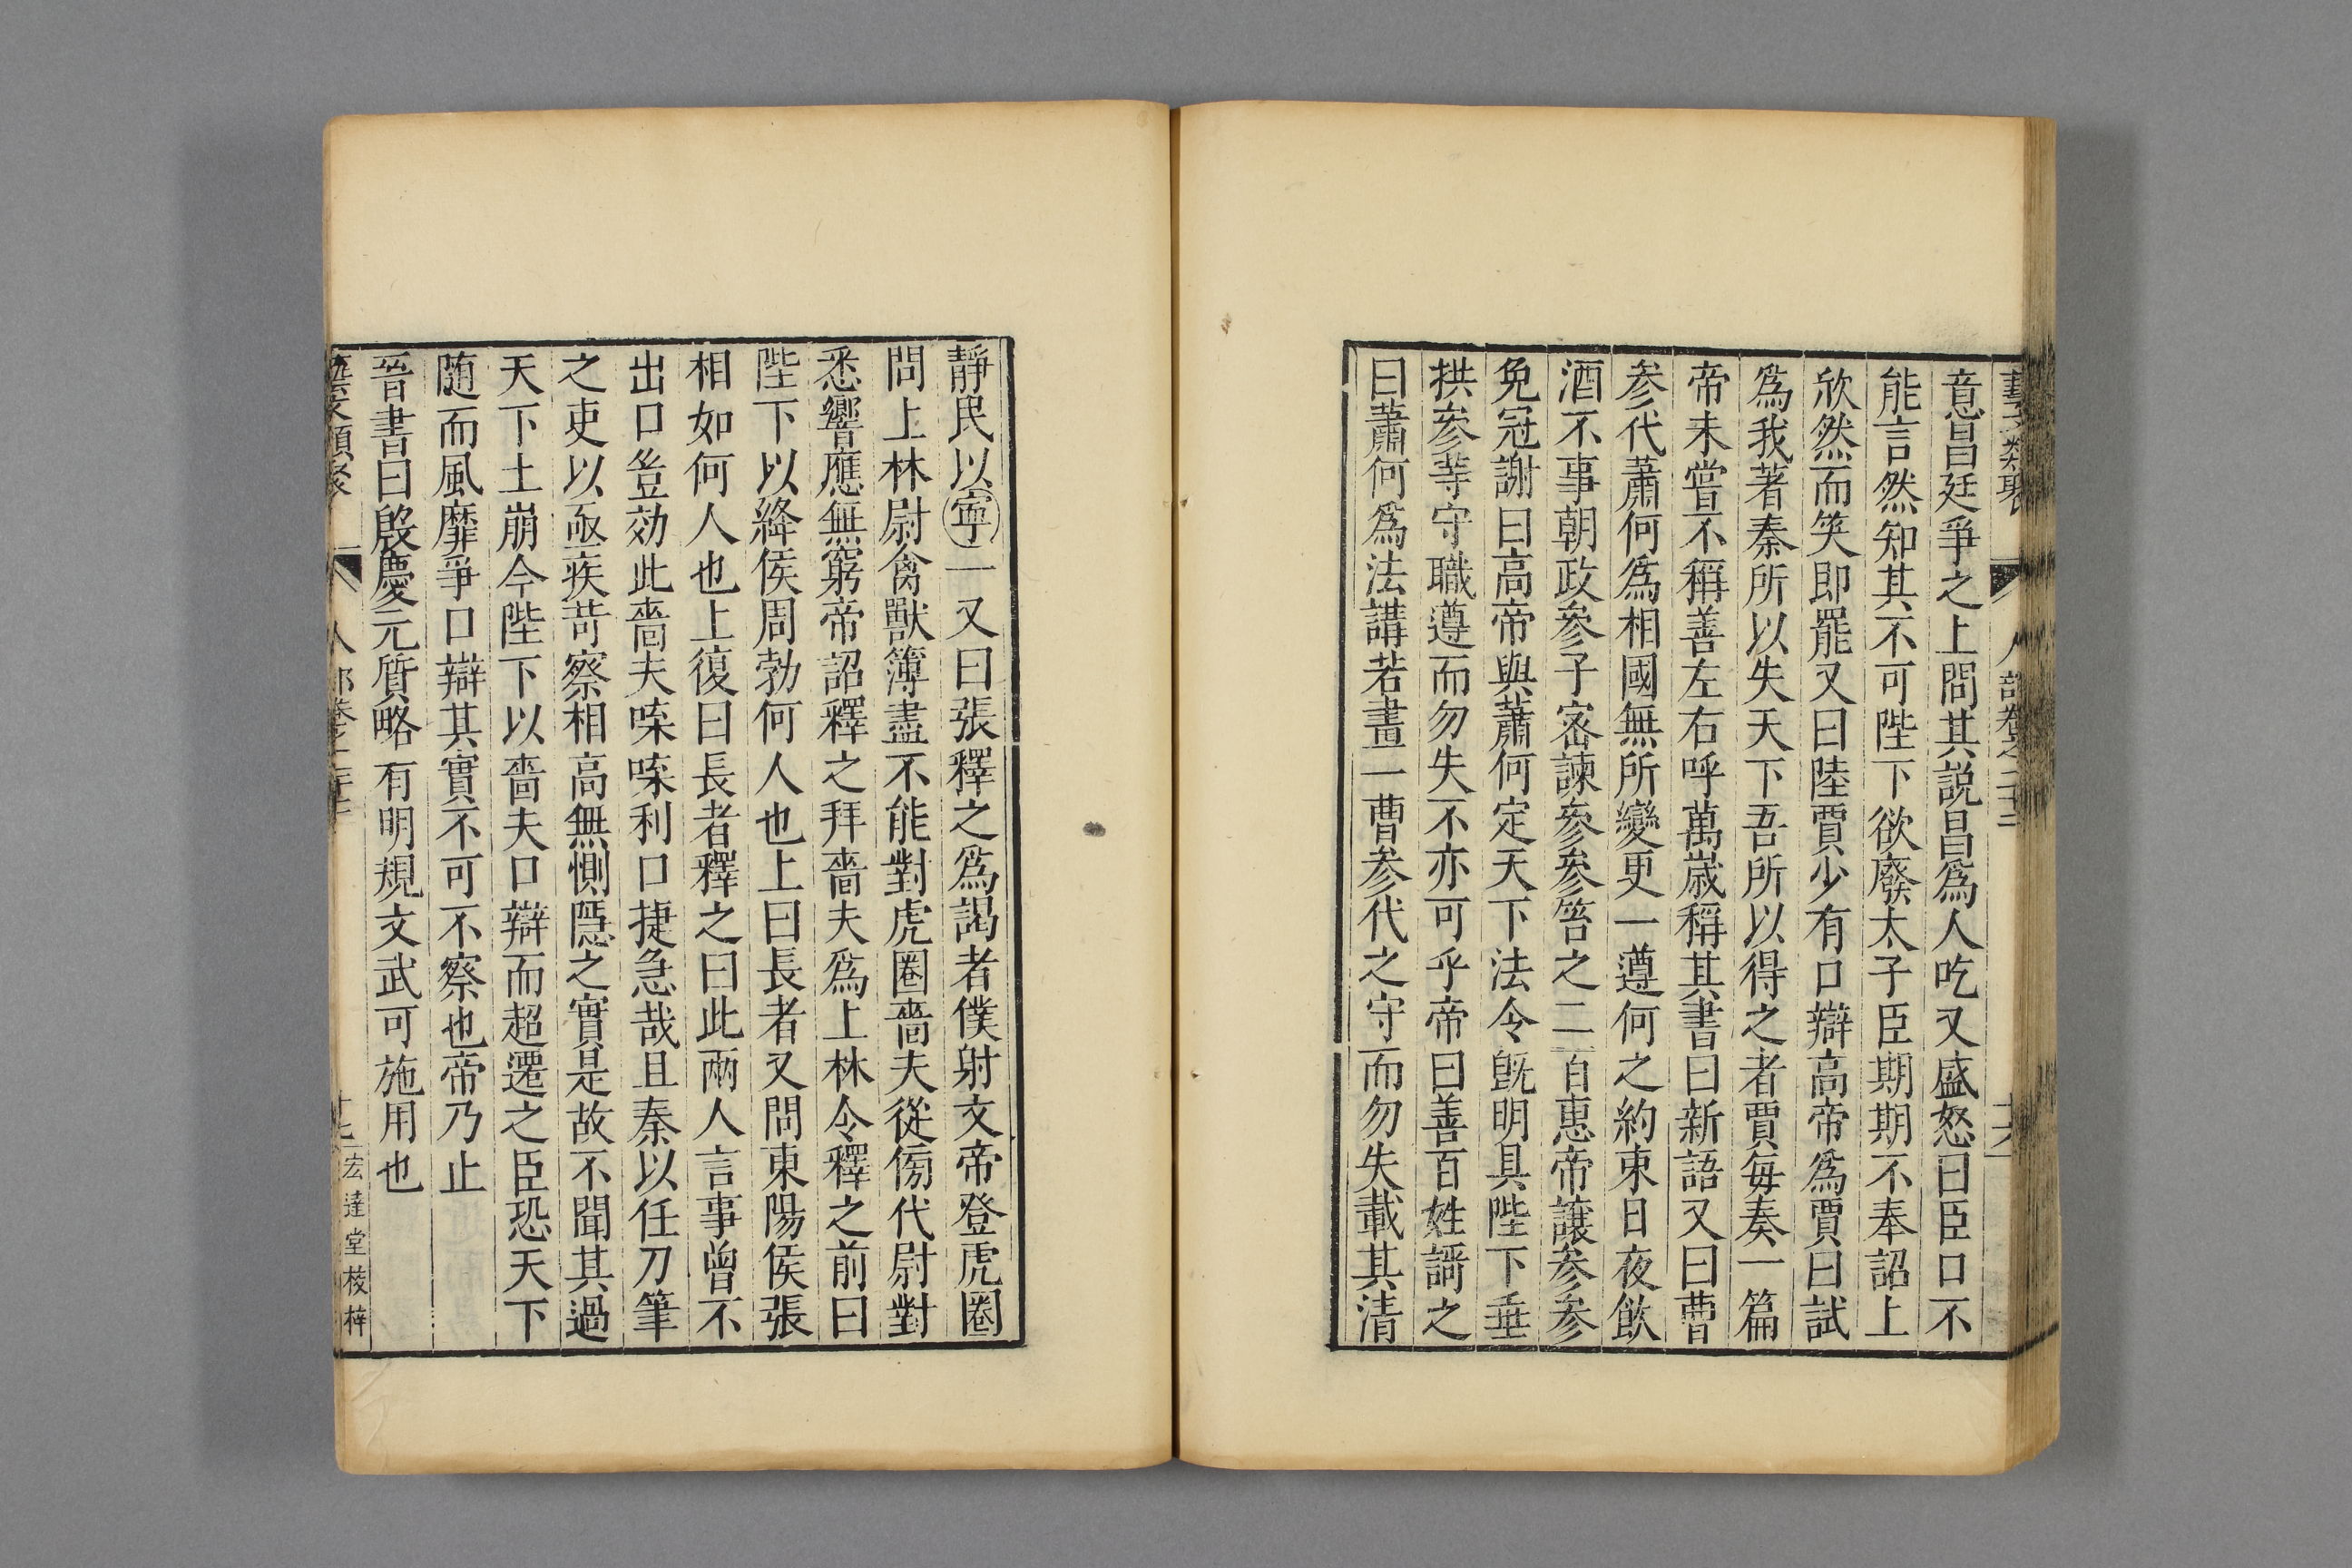 意昌廷爭之上問其説昌爲人吃又盛怒曰臣口不
能言然知其不可陛下欲廢太子臣期期不奉詔上
欣然而笑即罷又曰陸賈少有口辯高帝爲賈曰試
爲我著秦所以失天下吾所以得之者賈每奏一篇
帝未嘗不稱善左右呼萬歲稱其書曰新語又曰曹
參代蕭何爲相國無所變更一遵何之約束日夜飲
酒不事朝政參子密諫參參笞之二百惠帝讓參參
免冠謝曰高帝與蕭何定天下法令旣明具陛下垂
拱參等守職遵而勿失不亦可乎帝曰善百姓謌之
曰蕭何爲法講若畫一曹參代之守而勿失載其清
靜民以寧一又曰張釋之爲謁者僕射文帝登虎圈
問上林尉禽獸簿盡不能對虎圈嗇夫從傍代尉對
悉響應無窮帝詔釋之拜嗇夫爲上林令釋之前曰
陛下以絳侯周勃何人也上曰長者又問東陽侯張
相如何人也上復曰長者釋之曰此兩人言事曾不
出口豈効此嗇夫喋喋利口捷急哉且秦以任刀筆
之吏以亟疾苛察相高無惻隱之實是故不聞其過
天下土崩今陛下以嗇夫口辯而超遷之臣恐天下
随而風靡爭口辯其實不可不察也帝乃止
晉書曰殷慶元質略有明規文武可施用也
藝文類聚 人部卷之二十二 十七 宏達堂校梓